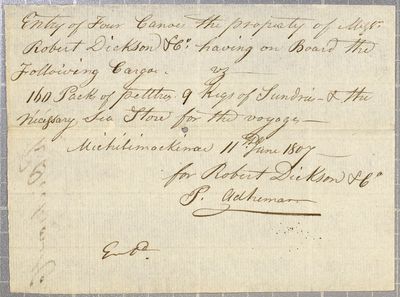 Entry of Four Canoe the property of Messrs.
Robert Dickson & Co. having on Board the
Following Cargoe. vz
160 Packs of peltries 9 Kegs of Sundries & the
Necessary Sea Store for the voyage
Michilimackinac 11th June 1807
for Robert Dickson & Co
P. Adhemar
Ent'd.